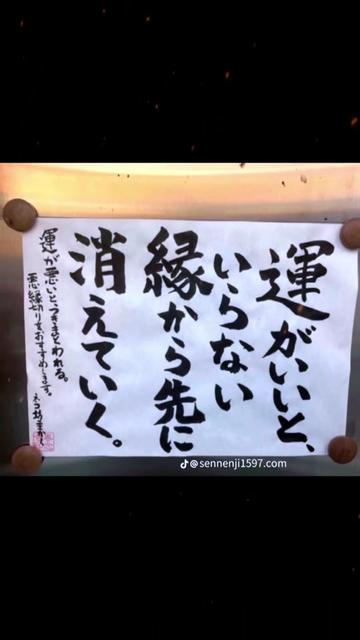 運がいいと、
いらない
縁から先に
消えていく。
運が悪いと、つきまとわれる。
悪縁切りをおすすめします。
ネコ坊主かく
@sennenji1597.com